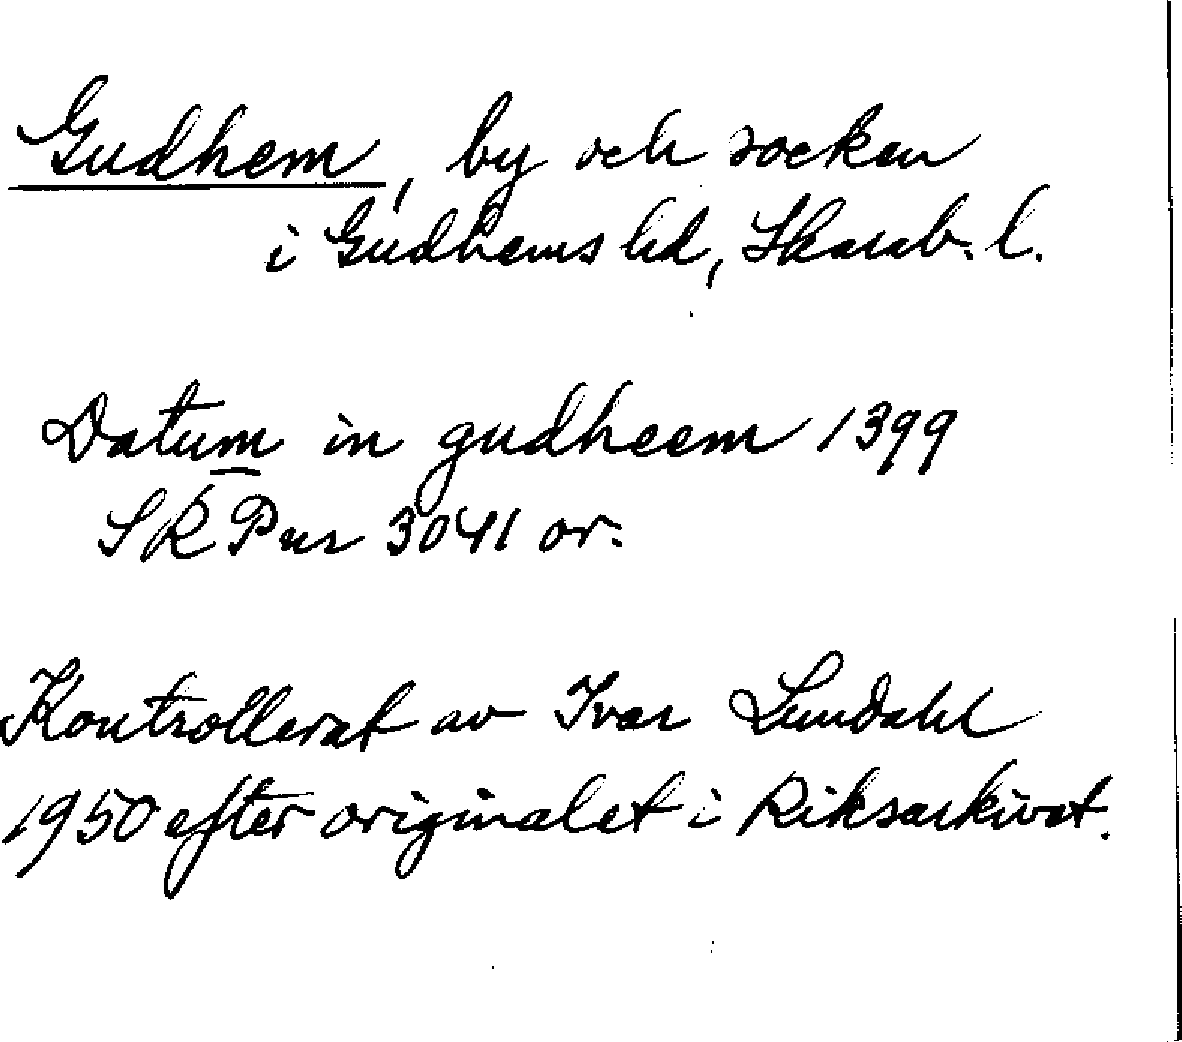 Gudhem, by och socken
i Gudhems hd, Skarab. l.
Datum in gudheem 1399
SRP nr 3041 or.
Kontrollerat av Ivar Lundahl
1950 efter originalet i Riksarkivet.